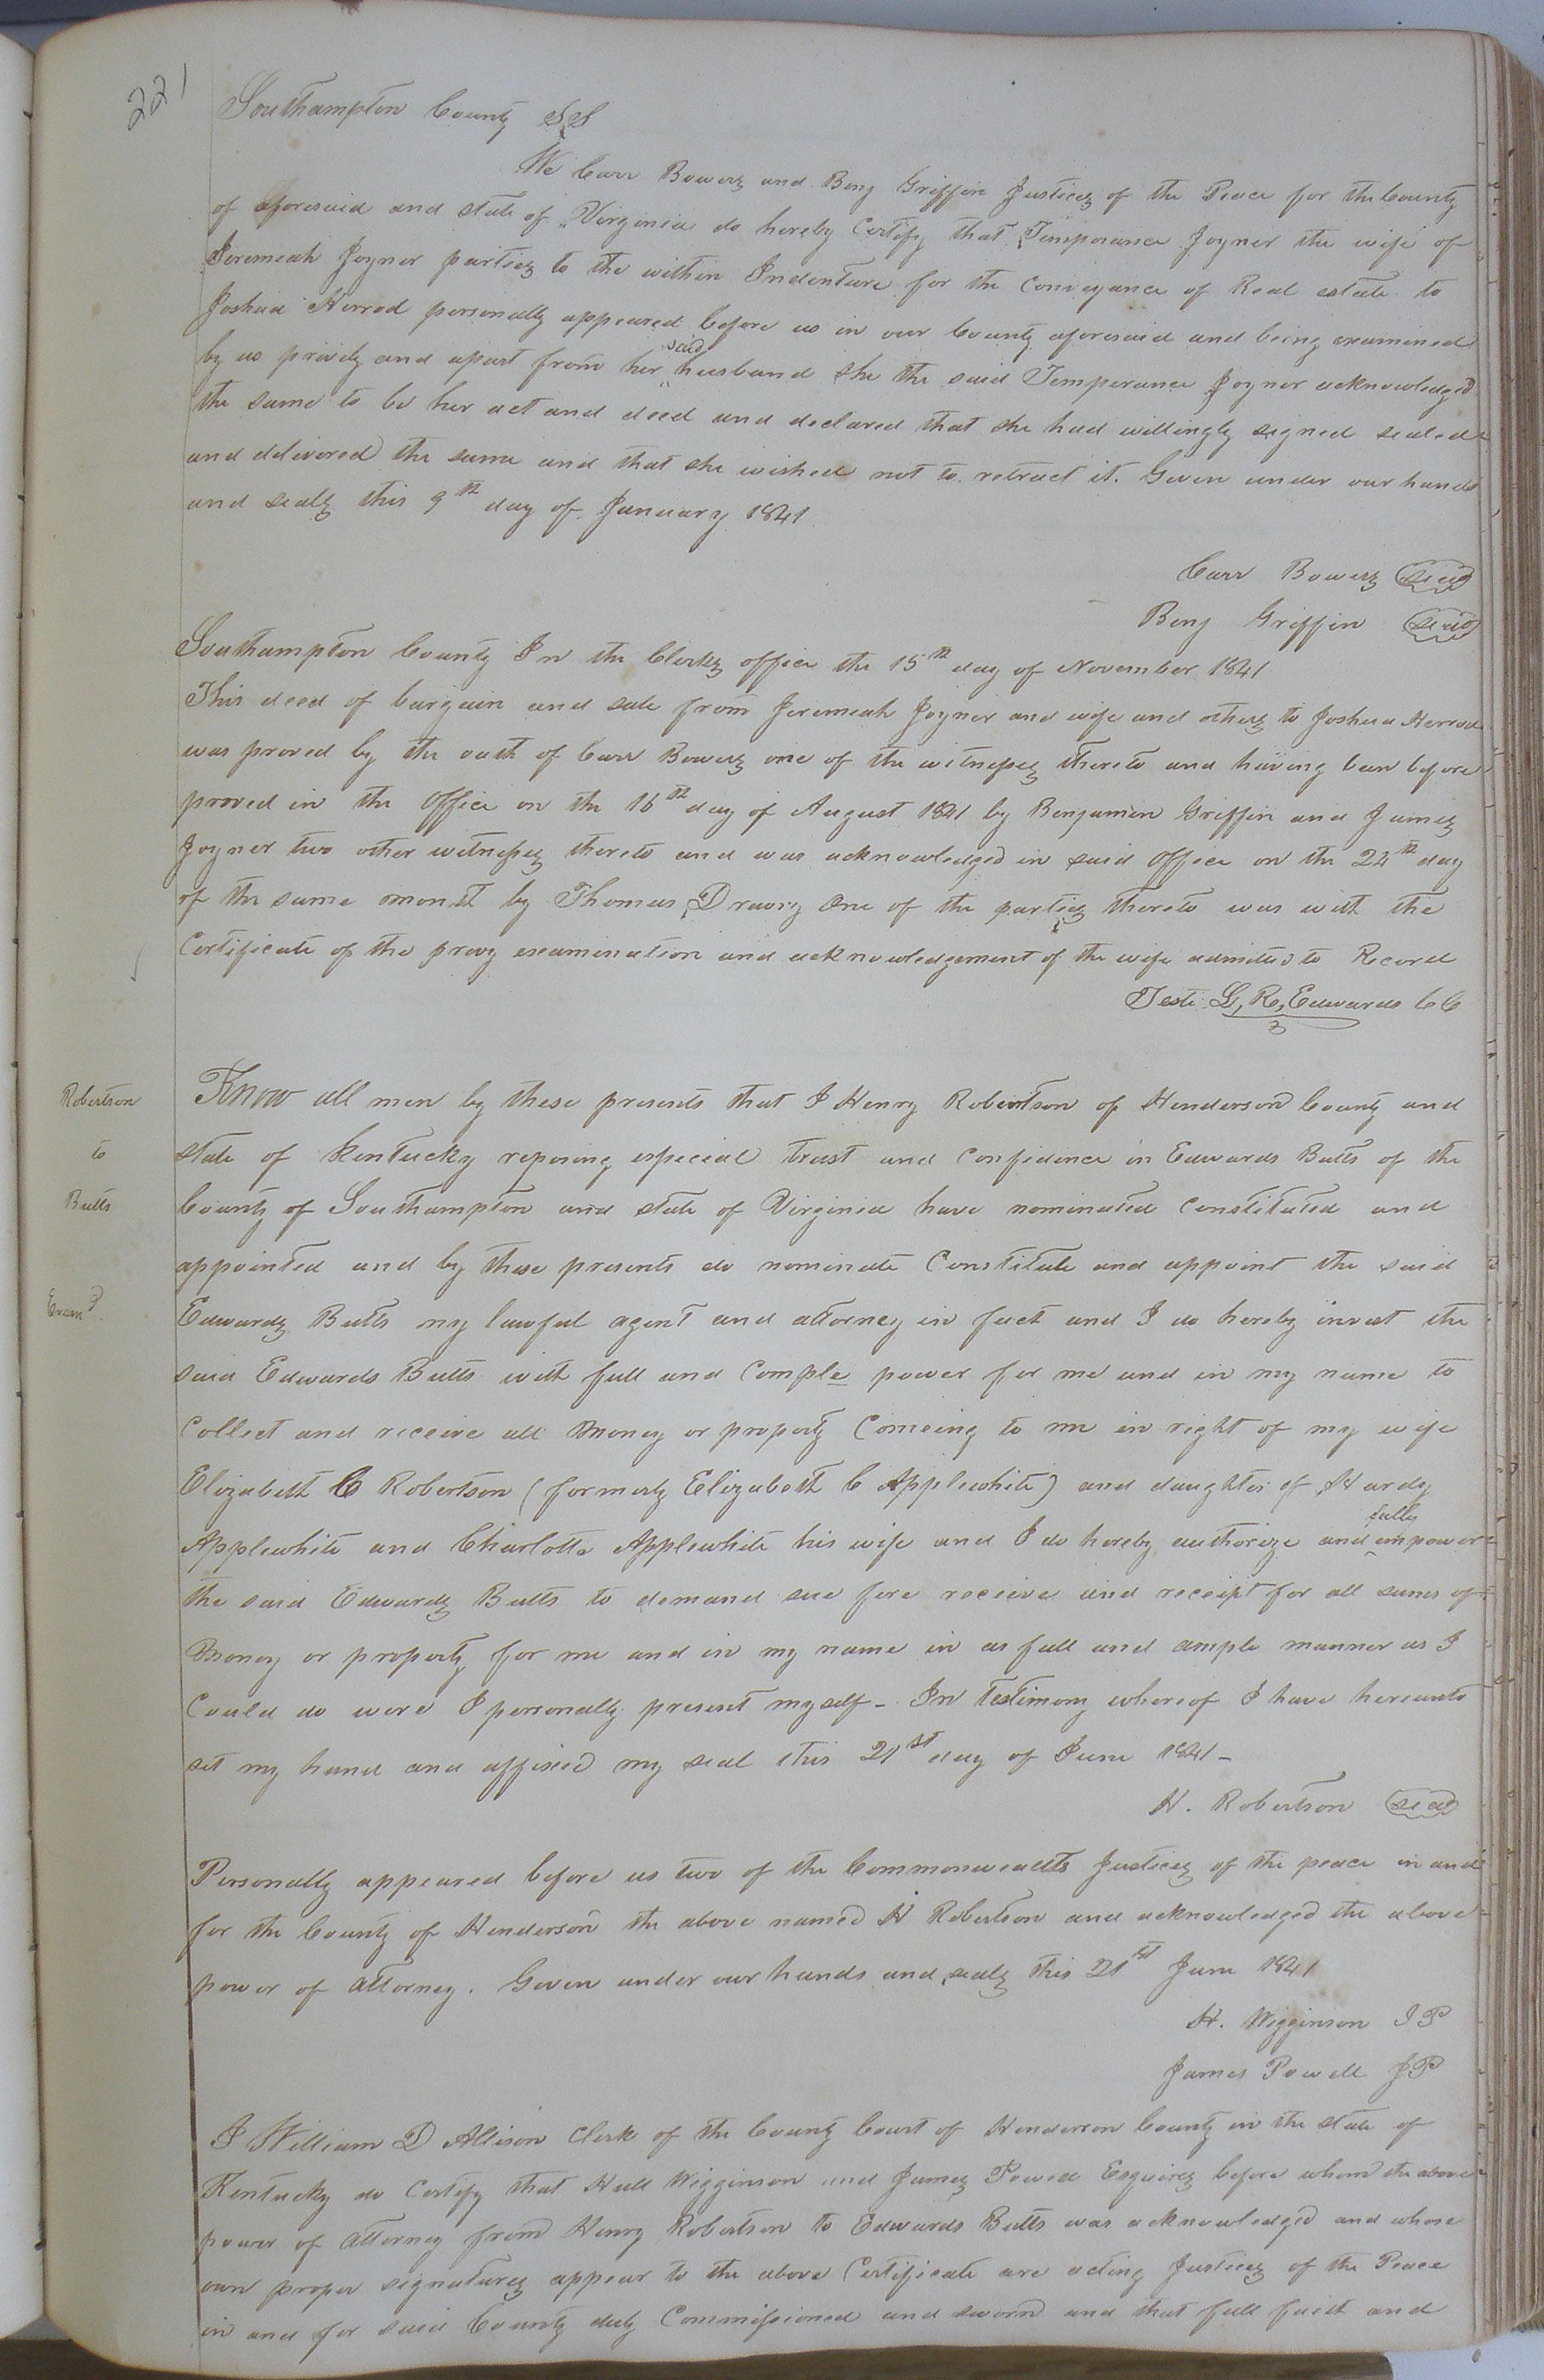 221
Southampton County SS
We Carr Bowers and Benj Griffin Justices of the Peace for the County
of aforesaid and state of Virginia do hereby Certify that Temperance Joyner the wife of
Jeremeah Joyner parties to the within Indenture for the Conveyance of Real estate to
Joshua Herrod personally appeared before us in our County aforesaid and being examined
by us privily and apart from her said husband she the said Temperance Joyner acknowledged
the same to be her act and deed and declared that she had willingly signed sealed
and delivered the same and that she wished not to retract it. Given under our hands
and seals this 9th day of January 1841
Carr Bowers seal
Benj Griffin seal
Southampton County In the Clerks office the 15th day of November 1841
This deed of bargain and sale from Jeremeah Joyner and wife and others to Joshua Herrod
was proved by the oath of Carr Bowers one of the witnesses thereto and having been before
proved in the Office on the 16th day of August 1841 by Benjamin Griffin and James
Joyner two other witnesses thereto and was acknowledged in said office on the 24th day
of the same month by Thomas Drewry One of the parties thereto was with the
Certificate of the privy examination and acknowledgement of the wife admitted to Record
Teste L, R, Edwards CC
Robertson
to
Butts
Examd
Know all men by these presents that I Henry Robertson of Henderson County and
state of Kentucky reposing especial trust and Confidence in Edwards Butts of the
County of Southampton and state of Virginia have nominated Constituted and
appointed and by these presents do nominate Constitute and appoint the said
Edwards Butts my lawful agent and attorney in fact and I do hereby invest the
said Edwards Butts with full and Comple power for me and in my name to
Collect and receive all Money or property Comeing to me in right of my wife
Elizabeth C Robertson (formerly Elizabeth C Applewhite) and daughter of Hardy
Applewhite and Charlotte Applewhite his wife and I do hereby authorize and fully empower
the said Edwards Butts to demand sue fore receive and receipt for all sums of
Money or property for me and in my name in as full and ample manner as I
Could do were I personally present myself - In Testimony whereof I have hereunto
set my hand and affixed my seal this 21st day of June 1841 -
H. Robertson seal
Personally appeared before us two of the Commonwealths Justices of the peace in and
for the County of Henderson the above named H Robertson and acknowledged the above
power of attorney. Given under our hands and seals this 21st June 1841
H. Wigginson J P
James Powell J P
I William D Allison Clerk of the County Court of Henderson County in the state of
Kentucky do Certify that Hull Wigginson and James Powell Esquires before whom the above
power of attorney from Henry Robertson to Edwards Butts was acknowledged and whose
own proper signatures appear to the above Certificate are acting Justices of the Peace
in and for said County duly Commissioned and sworn and that full faith and